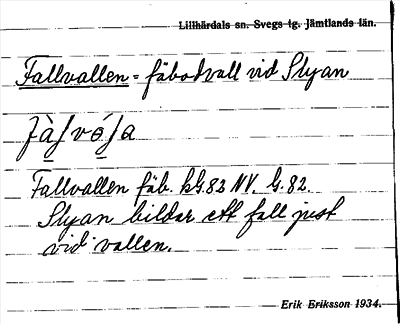 Lillhärdals sn. Svegs tg. Jämtlands län.
Fallvallen = fäbodvall vid Slyan
Fallvallen fäb. kG.82 NV. G.82.
Slyan bildar ett fall just
vid vallen.
Erik Eriksson 1934.